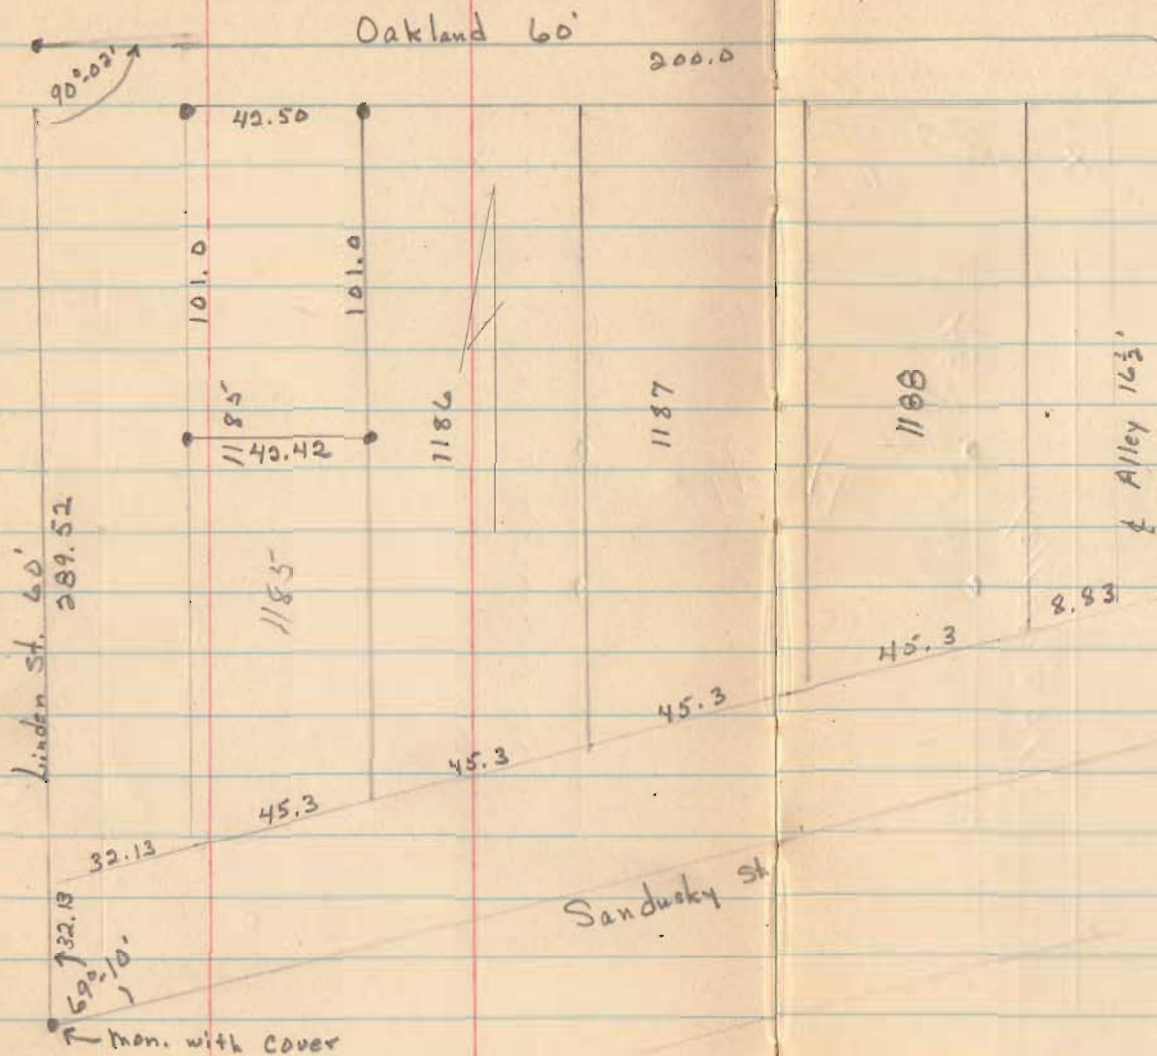 Oakland 60'
200.0
90°-02'
42.50
101.0
101.0
1185
42.42
1186
1187
1188
₵ Alley 16½'
Linden St. 60'
289.52
1185
8.83
45.3
45.3
45.3
45.3
32.13
32.13
69°-10'
Sandusky St
Mon. with cover